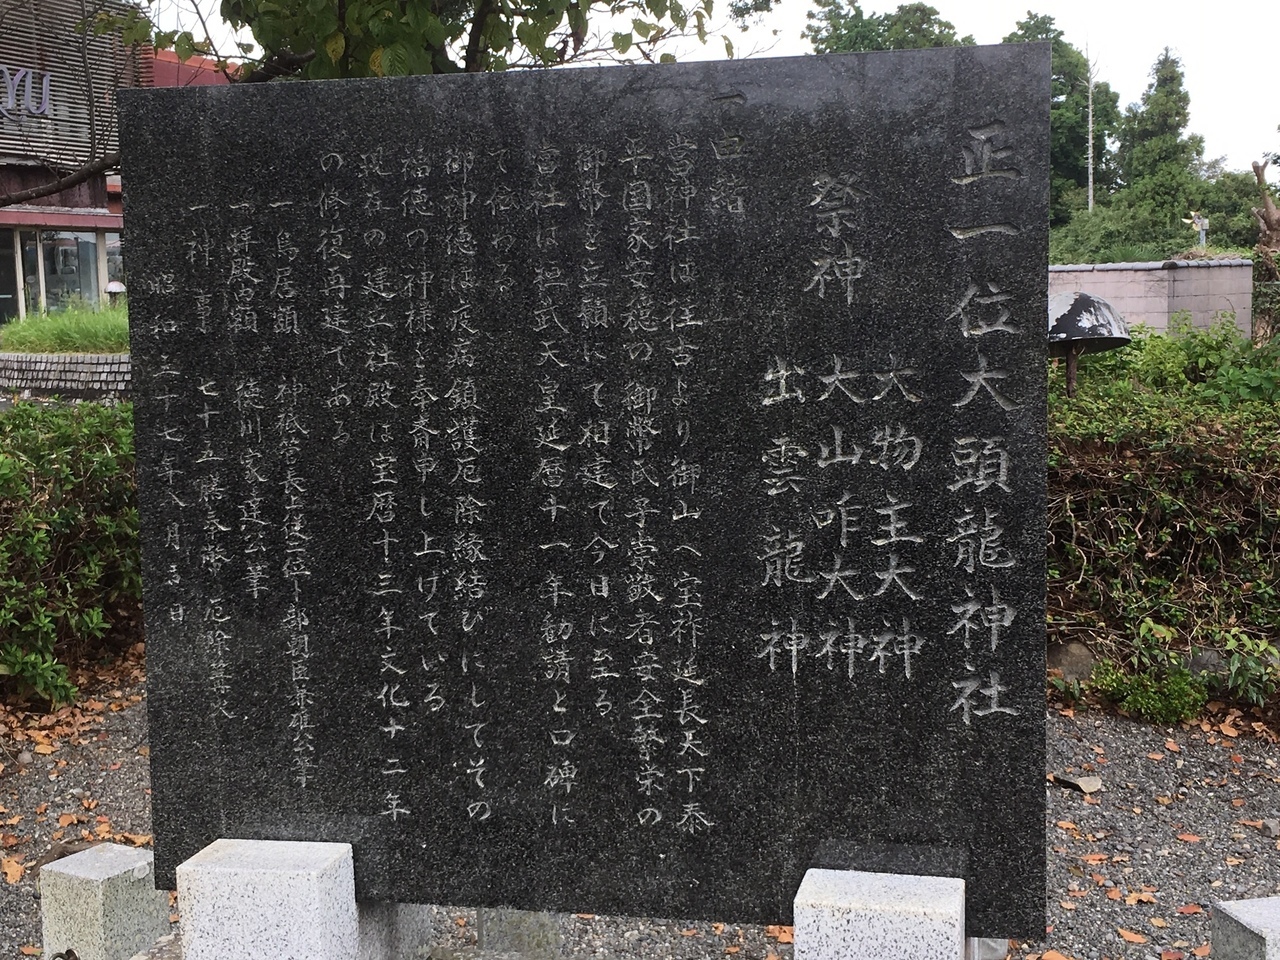 正一位大頭龍神社
祭神
大物主大神
大山咋大神
出雲龍神
一由緒
當神社は往古より御山へ宝祚延長天下泰
平国家安穏の御幣氏子崇敬者安全繁栄の
御幣を立願にて相建て今日に至る
當社は桓武天皇延暦十一年勧請と口碑に
て伝わる
御神徳は疫病鎮護厄除縁結びにしてその
福徳の神様と奉斉申し上げている
現在の建立社殿は宝暦十三年文化十二年
の修復再建である
一鳥居額 神祇管長上従二位卜部朝臣兼雄公筆
一拝殿四額 徳川家達公筆
一神事 七十五膳奉幣 厄除篝火
昭和三十七年八月吉日
YU